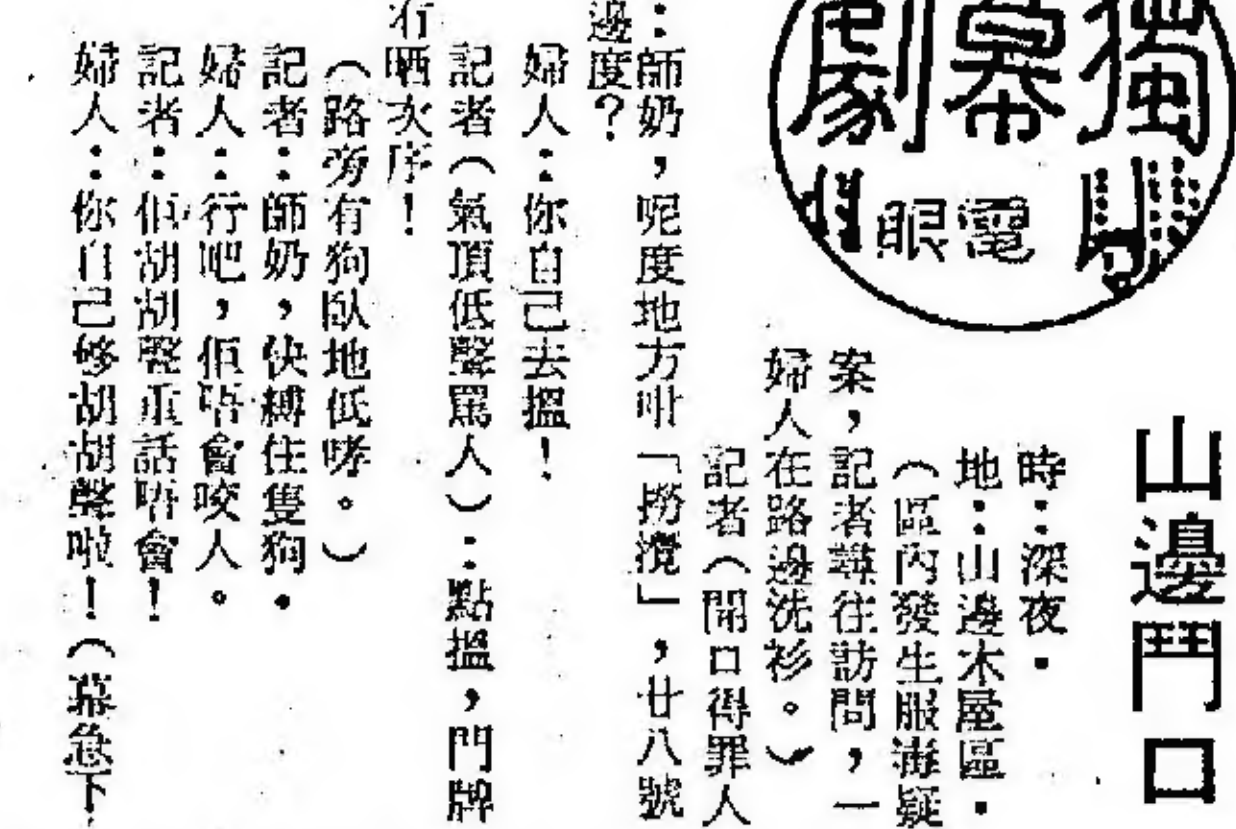 獨幕劇
電眼
山邊鬥口
時：深夜。
地：山邊木屋區。
（區內發生服毒疑
案，記者尋往訪問，一
婦人在路邊洗衫。）
記者（開口得罪人
：師奶，呢度地方咁「撈攪」，廿八號
邊度？
婦人：你自己去搵！
記者（氣頂低聲罵人）：點搵，門牌
冇晒次序！
（路旁有狗臥地低哮。）
記者：師奶，快縛住隻狗。
婦人：行吧，佢唔會咬人。
記者：佢胡胡聲重話唔會！
婦人：你自己够胡胡聲啦！（幕急下